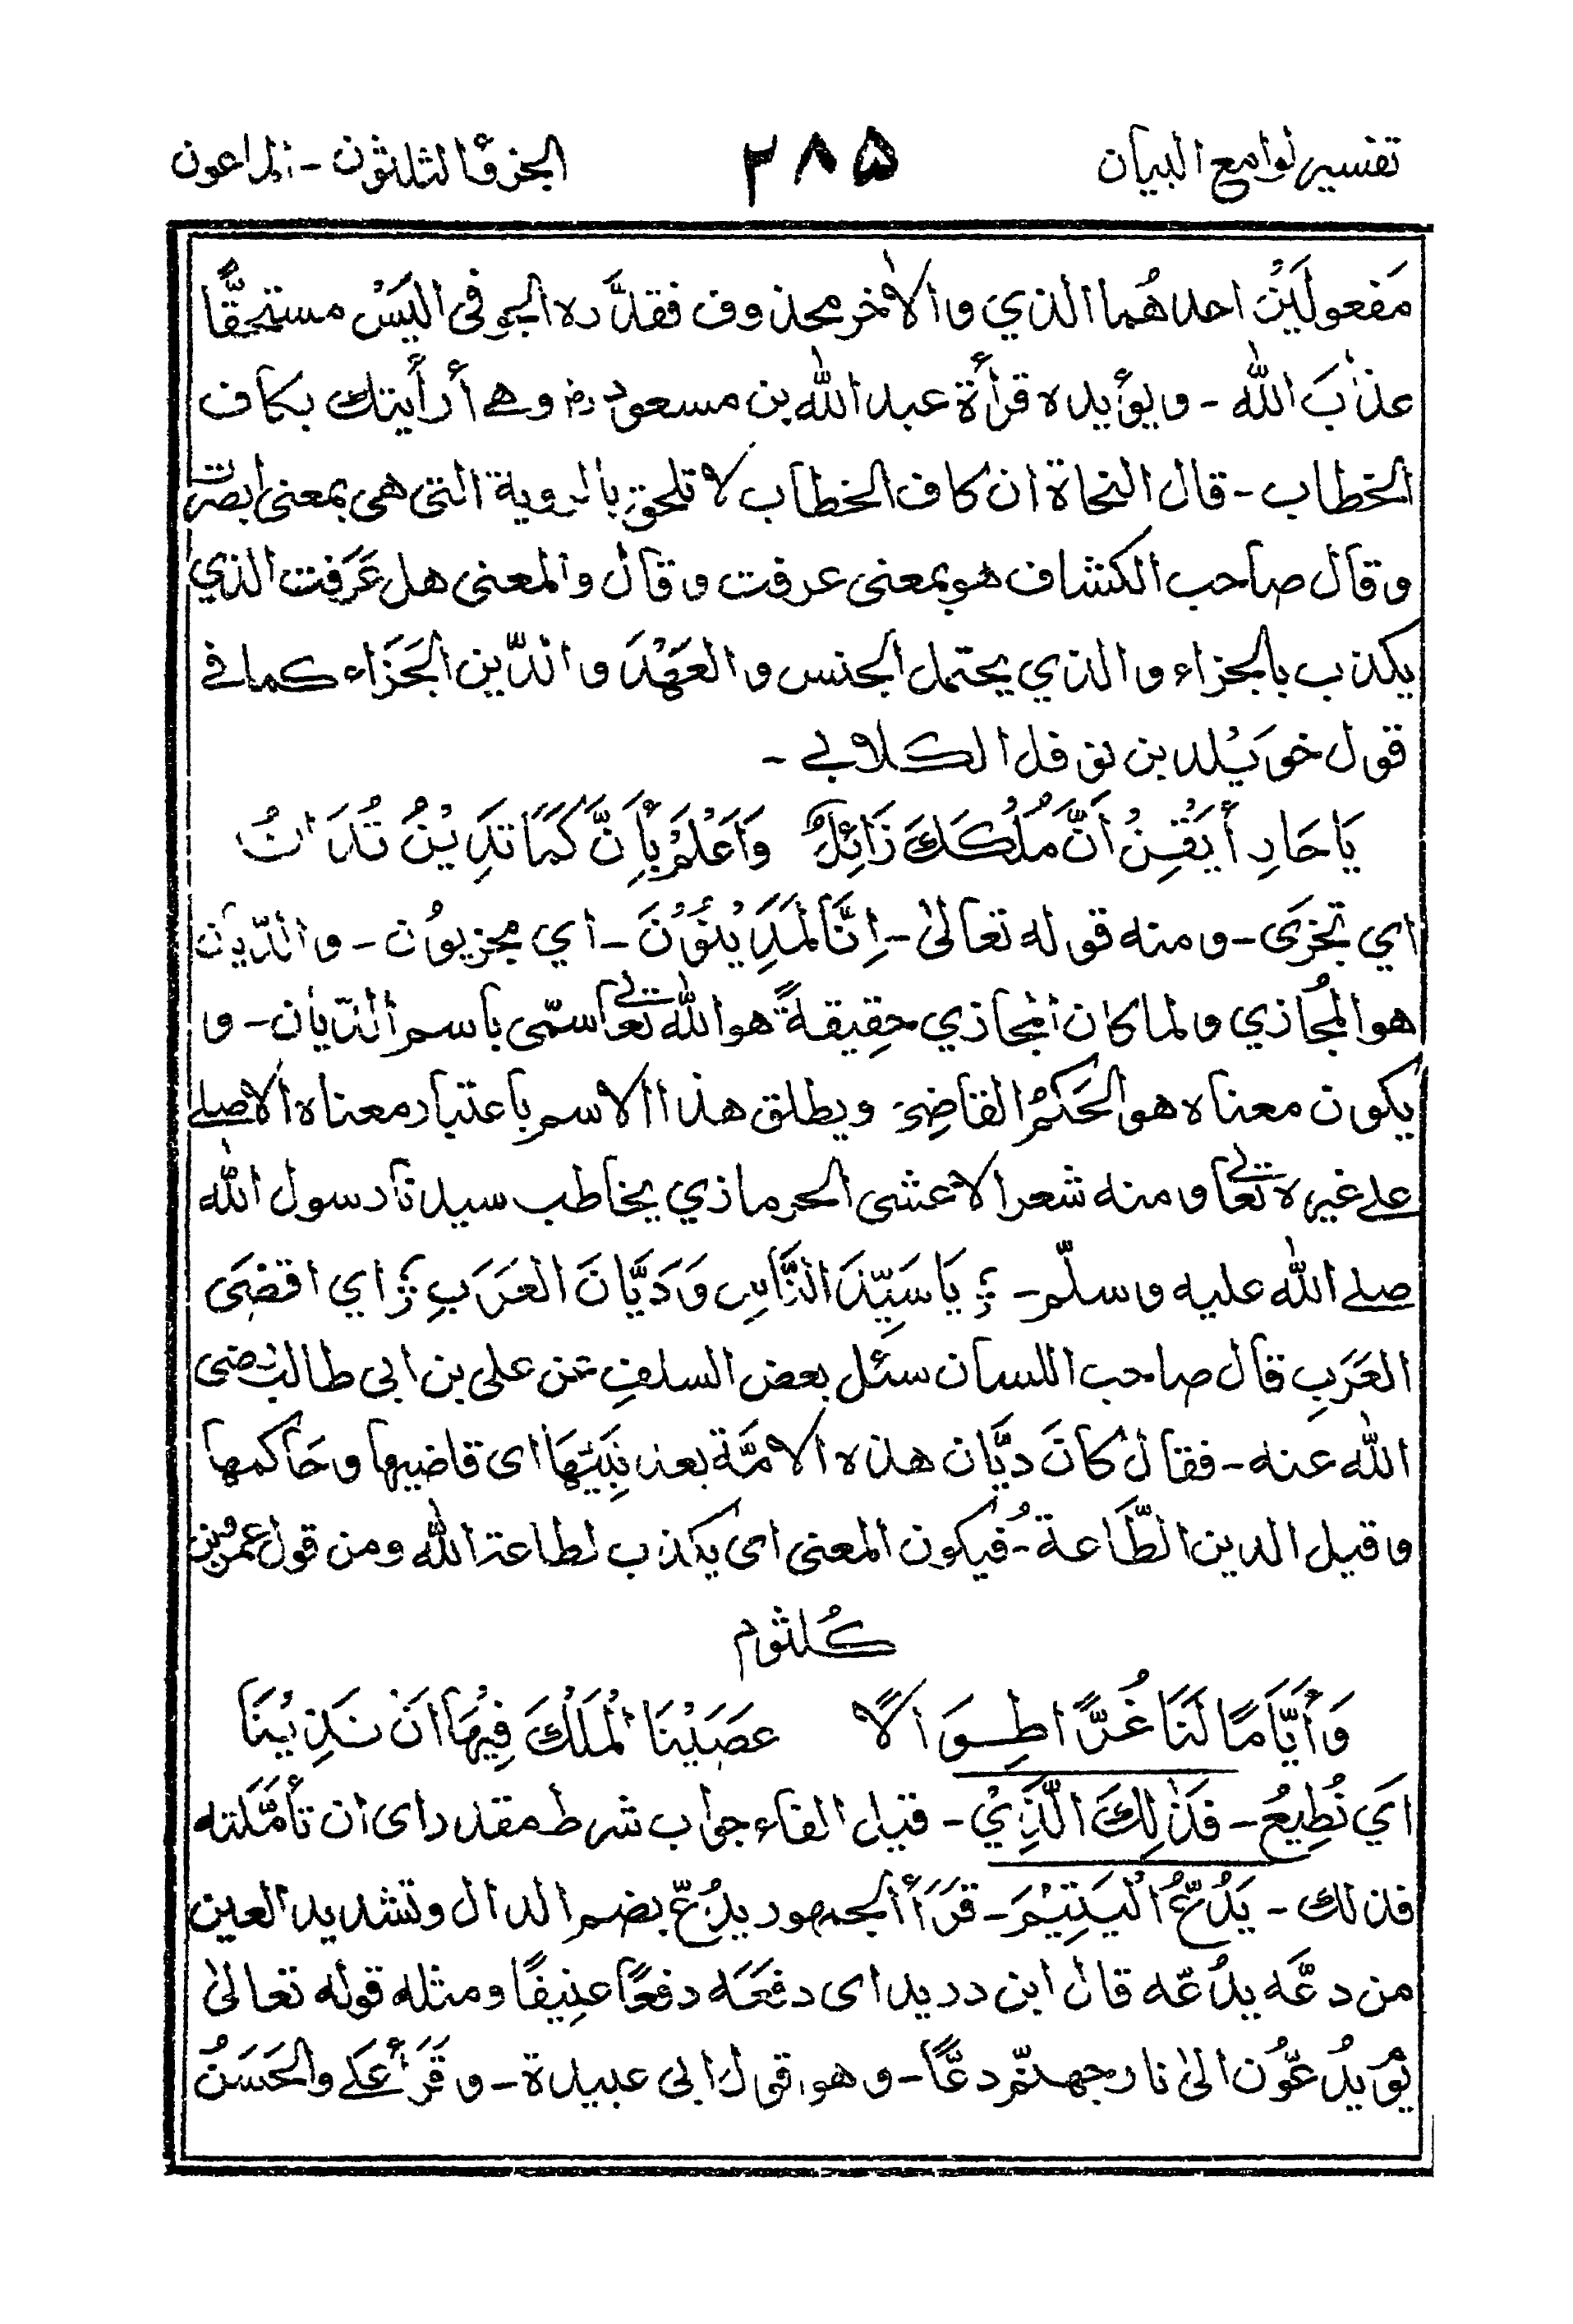 تفسير لوامع البيان ٢٨٥ الجزؤ الثلثون - الماعون
مَفعولَيْنِ احدهُما الذي والاٰخر محذوف فقدَّره الجوفى اليَسْ مستحقًّا
عذٰبَ اللّٰه - ويؤيده قرأة عبد اللّٰه بن مسعود رضـ وهے أرأيتك بكاف
الخطاب - قال النحاة ان كاف الخطاب لا تلحق بالروية التى هى بمعنى ابصرت
وقال صاحب الكشاف هو بمعنى عرفت وقال والمعنى هل عَرَفت الذي
يكذب بالجزاء والذي يحتمل الجنس والعَهْدَ والدّين الجَزَاء كما فے
قول خوَيْلد بن نوفل الكلابے -
يَا حَارِ أَيَقِنُ أَنَّ مُلُكَكَ زَائِلٌ وَاَعْلَمْ بِأَنَّ كَمَا تَدِيْنُ تُدَانُ
اي تجزَى - ومنه قوله تعالىٰ - اِنَّا لَمَدِيْنُوْنَ - اي مجزيوُن - والدّيان
هو المُجازي ولما كان المجازي حِقيقةً هو اللّٰه تعالےٰ سمّى باسم الدّيان - و
يكون معناه هو الحَكَمُ القاضِى ويطلق هذا الاسم باعتبار معناه الاصلے
علے غيره تعالےٰ ومنه شعر الاعشى الحرمازي يخاطب سيدنا رسول اللّٰه
صلے اللّٰه عليه وسلّم - ؏ يَا سَيِّدَ النَّاسِ وَدَيَّانَ العَرَبِ ؏ اي اقضَى
العَرَبِ قال صاحب اللسان سئل بعض السلفِ عن على بن ابى طالب رضى
اللّٰه عنه - فقال كانَ ديَّان هذه الامَّة بعد نِبَيِّهَا اى قاضيها وحَاكمها
وقيل الدين الطَّاعة - فُيكون المعنى اى يكذب لطاعة اللّٰه ومن قول عمرُ بن
كُلثوم
وَأَيَّامًا لَنَا غُرًّا طِوَالًا عصَيْنَا الُمَلْكَ فِيْهَا انَ نَدِيْنَا
اَي نُطِيعُ - فَذٰلِكَ الَّذِيْ - قيل الفاء جواب شرط مقدر اى ان تأمَّلته
فذلك - يَدُعُّ الْيَتِيْمَ - قَرَأَ الجمهور يدُعّ بضم الدال وتشديد العين
من دعَّه يدُعّه قال ابن دريد اى دفَعَه دفعًا عنِيفًا ومثله قوله تعالىٰ
يُوْ يدُعّوُن الىٰ نار جهنّم دعًّا - وهو قول ابى عبيدة - وقَرَأ عَلے والحَسَنُ